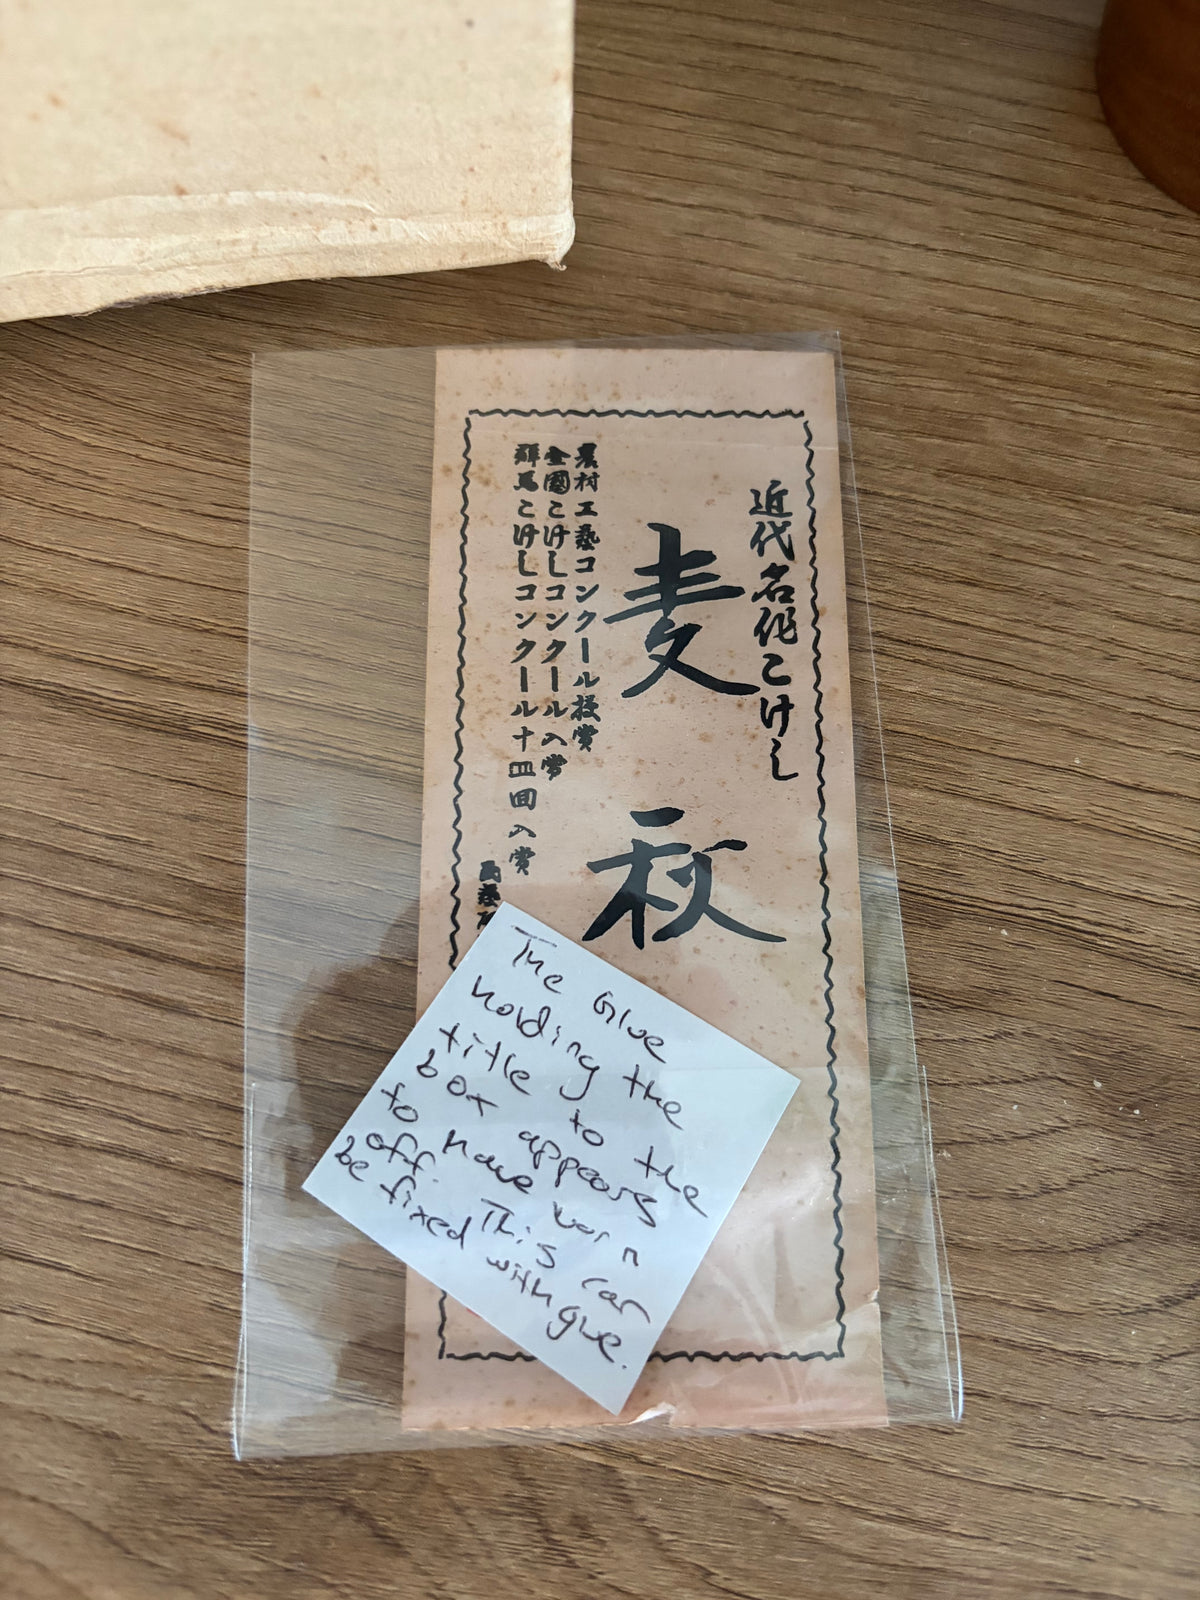 近代名作こけし
麦秋
農村工藝コンクール授賞
全國こけしコンクール入賞
群馬こけしコンクール十四回入賞
民藝
The Glue
holding the
title to the
box appears
to have worn
off. This can
be fixed with glue.